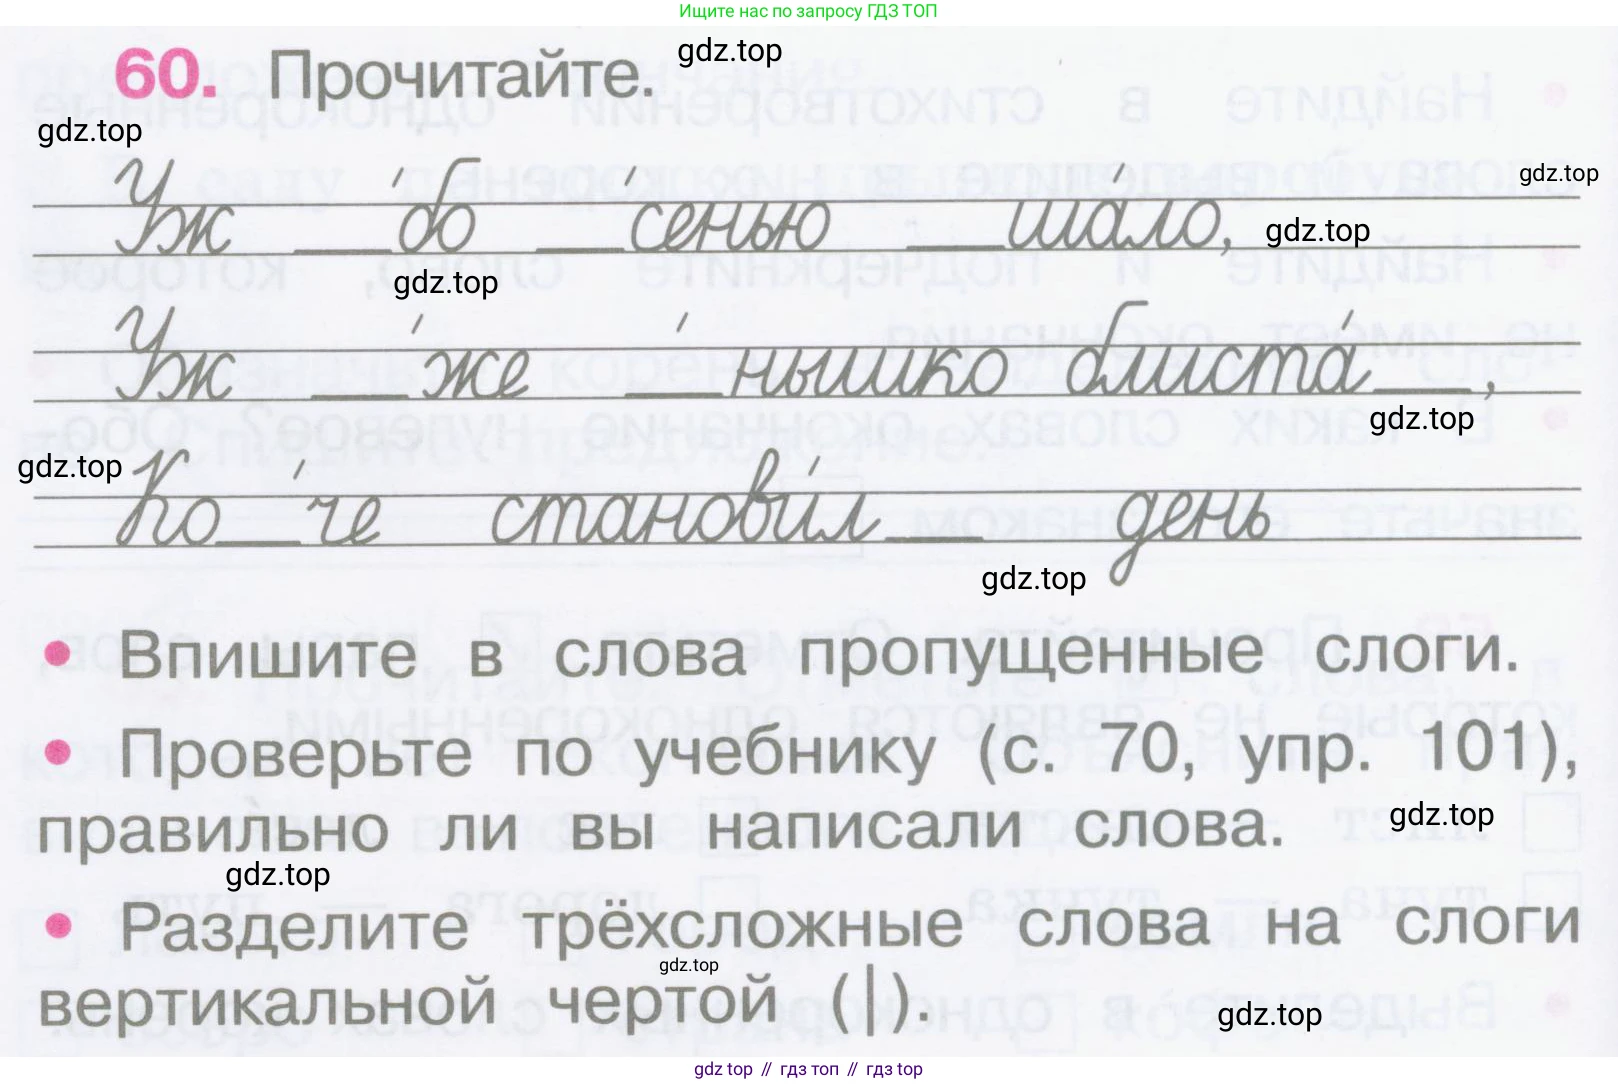 Ищите нас по запросу ГДЗ ТОП
60. Прочитайте.
gdz.top
gdz.top
gdz.top
Уж ___бо ___сенью ___ша́ло,
gdz.top
gdz.top
Уж ___же ___нышко блиста́___,
gdz.top
gdz.top
Ко___че станови́л___ день
gdz.top
• Впишите в слова пропущенные слоги.
• Проверьте по учебнику (с. 70, упр. 101),
правильно ли вы написали слова.
gdz.top
gdz.top
• Разделите трёхсложные слова на слоги
gdz.top
вертикальной чертой (|).
gdz.top
gdz top // гдз топ // гдз top